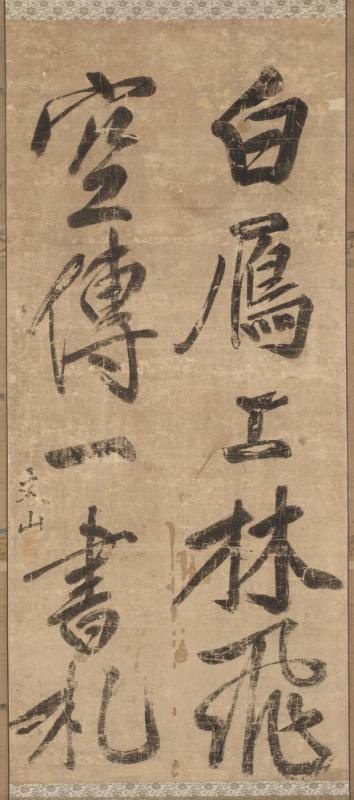 白鴈上林飛
空傳一書札
文山